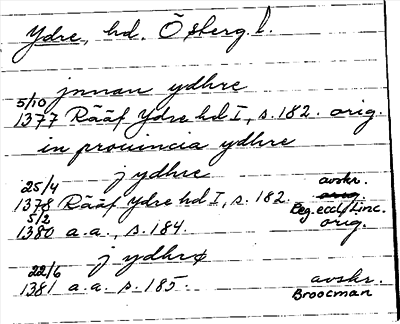 Ydre, hd. Österg. l.
jnnan ydhre
5/10
1377 Rääf Ydre hd I, s. 182. orig.
in prouincia ydhre
j ydhre
25/4 avskr.
1378 Rääf Ydre hd I, s. 182. orig.
5/2 Reg. eccl. Linc.
1380 a.a., s. 184. orig.
j ydhrø
22/6 avskr.
1381 a.a. s. 185. Broocman